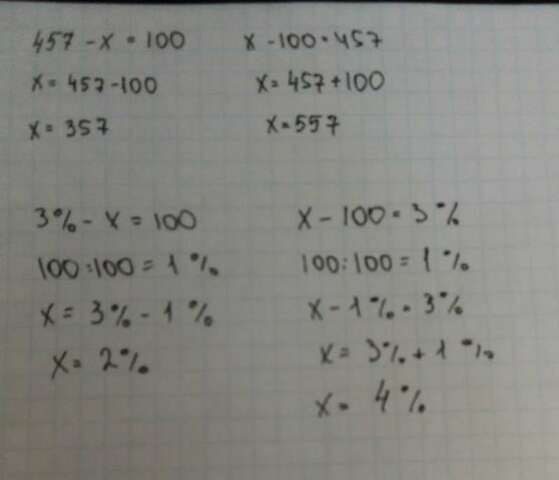 457 - x = 100
x = 457 - 100
x = 357
x - 100 = 457
x = 457 + 100
x = 557
3% - x = 100
100 : 100 = 1%
x = 3% - 1%
x = 2%
x - 100 = 3%
100 : 100 = 1%
x - 1% = 3%
x = 3% + 1%
x = 4%